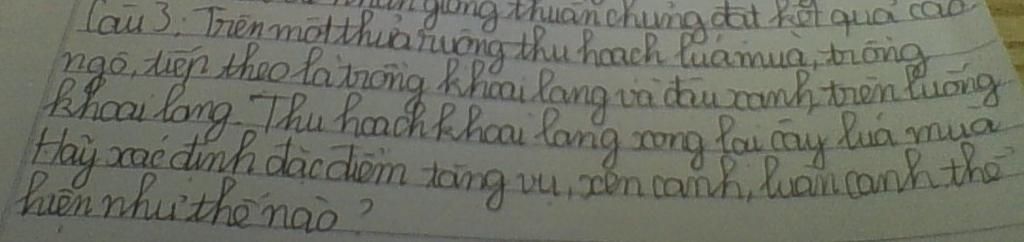 nhân giống thuần chủng đạt kết quả cao.
Câu 3: Trên một thửa ruộng thu hoạch lúa mùa, trồng
ngô, tiếp theo là trồng khoai lang và đậu xanh, trên luống
khoai lang. Thu hoạch khoai lang xong lại cấy lúa mùa
Hãy xác định đặc điểm tăng vụ, xen canh, luân canh thể
hiện như thế nào?